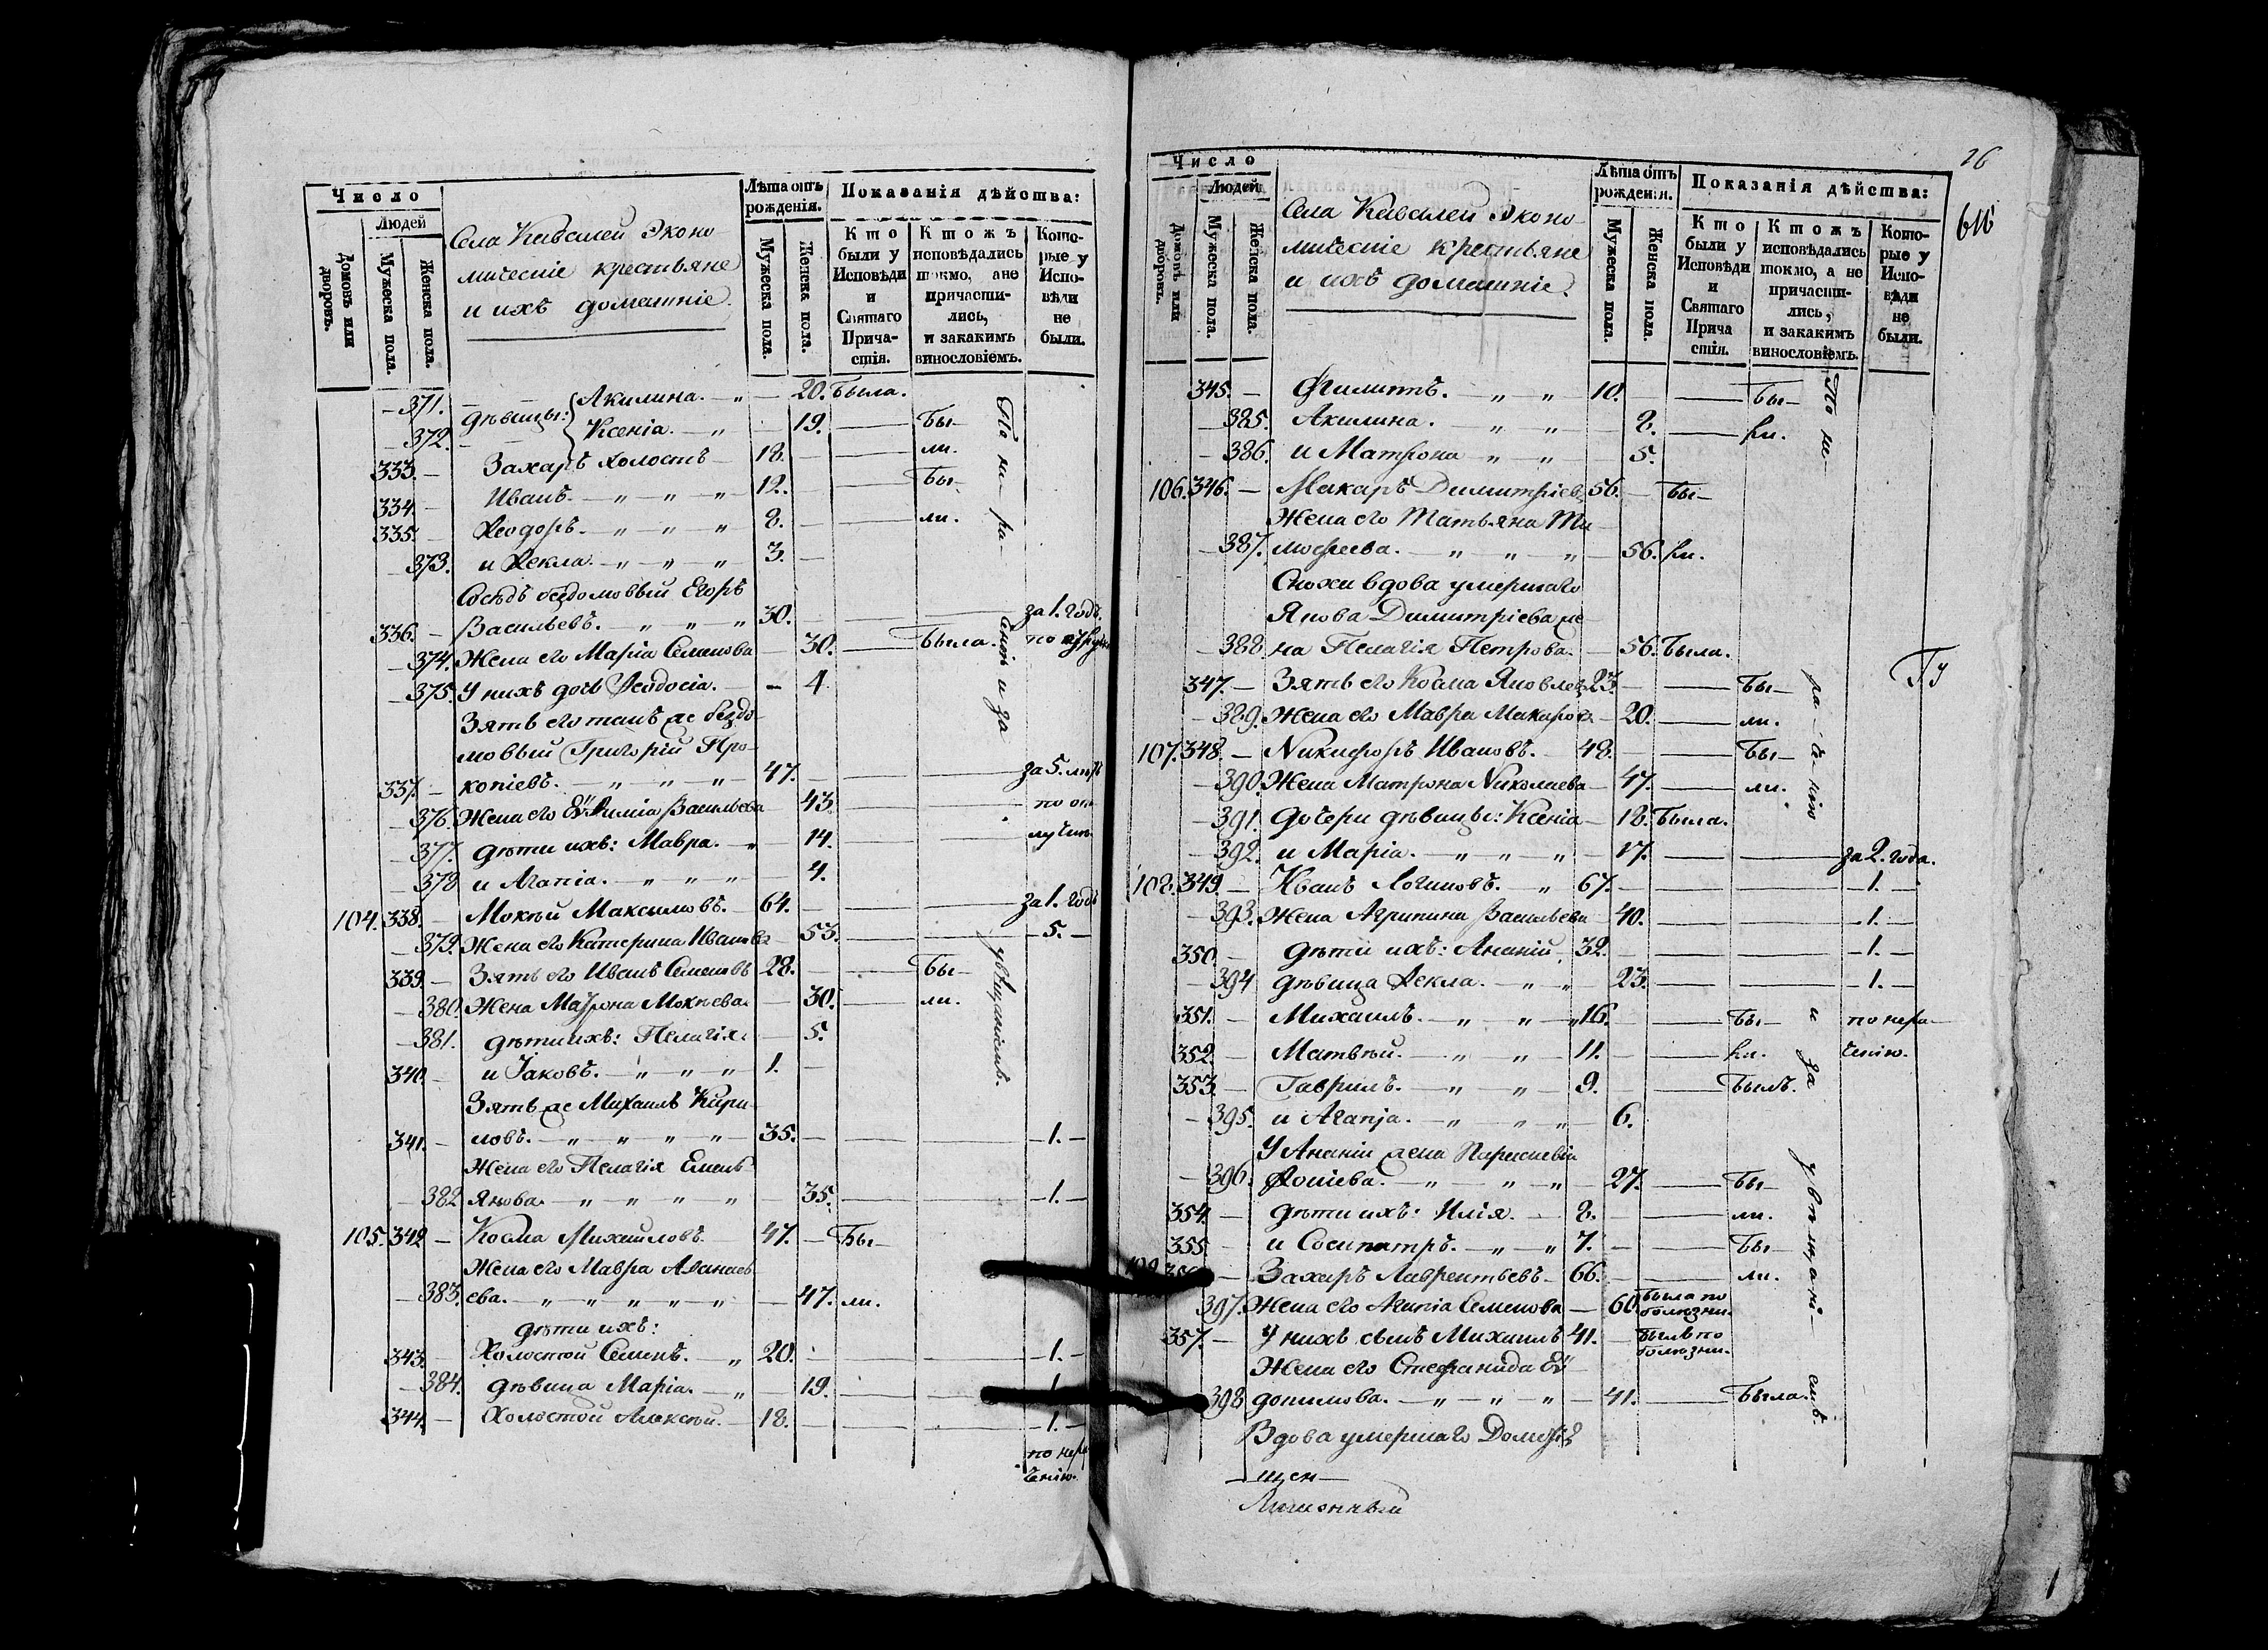 Число
Людей
Домовъ или дворовъ.
Мужеска пола.
Женска пола.
Села Кивалей Эконо-
мическіе крестьяне
и ихъ домашніе.
Лѣта отъ рожденія.
Мужеска пола.
Женска пола.
Показанія дѣйства:
Кто были у Исповѣди и Святаго Прича-стія.
Ктожъ исповѣдались токмо, а не причасти-лись, и закакимъ винословіемъ.
Кото-рые у Испо-вѣди не были.
371. дѣвицы: Акилина. 20. Была.
372. Ксенія. 19. Бы-
333. Захаръ холостъ 18. ли.
334. Иванъ. 12. Бы-
335. Ѳеодоръ. 8. ли.
373. и Ѳекла. 3.
Сосѣдъ бездомовый Егоръ
336. Васильевъ. 30. за 1. годъ.
374. Жена его Марія Семенова 30. Была.
375. У нихъ дочь Ѳеодосія. 4.
Зять его такъ же бездо-
мовый Григорій Про-
337. копіевъ. 47. за 5. лѣтъ
376. Жена его Еѵѳимія Васильева 43. по от
377. дѣти ихъ: Мавра. 14. лучкѣ
378 и Агапіа. 4.
104. 338. Мокѣй Максимовъ. 64. за 1. годъ
379. Жена его Катерина Иванова 53. 5.
339. Зять его Иванъ Семеновъ 28. Бы-
380. Жена Матрона Мокѣева. 30. ли.
381. дѣти ихъ: Пелагія. 5.
340. и Іаковъ. 1.
Зять же Михаилъ Кири-
341. ловъ. 35. 1.
Жена его Пелагія Емель-
382 янова. 35. 1.
105. 342 Косма Михайловъ. 47. Бы-
Жена его Мавра Аѳанась-
383. ева. 47. ли.
дѣти ихъ:
343. Холостой Семенъ. 20. 1.
384. дѣвица Марія. 19.
344. Холостой Алексѣй. 18. 1.
по нера
ченію.
По не ра-
ченію и за
увѣщаніемъ.
26
Число
Людей
Домовъ или дворовъ.
Мужеска пола.
Женска пола.
Села Кивалей Эконо-
мическіе крестьяне
и ихъ домашніе.
Лѣта отъ рожденія.
Мужеска пола.
Женска пола.
Показанія дѣйства:
Кто были у Исповѣди и Святаго Прича стія.
Ктожъ исповѣдались токмо, а не причасти-лись, и закакимъ винословіемъ.
Кото-рые у Испо-вѣди не были.
345. Филиппъ. 10. Бы-
385. Акилина. 8. ли.
386. и Матрона 5.
106. 346. Макаръ Димитріевъ 56. Бы-
Жена его Татьяна Ти-
387. моѳеева. 56. ли.
Сноха вдова умершаго
Якова Димитріева же-
388. на Пелагія Петрова. 56. Была.
347. Зять его Косма Яковлевъ 23. Бы-
389. Жена его Мавра Макарова 20. ли.
107. 348. Никифоръ Ивановъ. 48. Бы-
390. Жена Матрона Николаева 47. ли.
391. дочери дѣвицы: Ксенія 18. Была.
392. и Марія. 17. за 2. года.
108. 349. Иванъ Логиновъ. 67. 1.
393. Жена Агрипина Васильева 40. 1.
350. дѣти ихъ: Ананій 32. 1.
394 дѣвица Ѳекла. 23. 1.
351. Михаилъ. 16. Бы- по нера-
352. Матвѣй. 11. ли. ченію.
353. Гаврилъ. 9. Былъ.
395. и Агапіа. 6.
У Ананіи жена Параскевіа
396. Ѳокіева. 27. Бы-
354. дѣти ихъ: Илія. 8. ли.
355 и Сосипатръ. 7. Бы-
Захаръ Лаврентьевъ 66. ли.
397. Жена его Агапіа Семенова 60. была по болѣзни.
357. У нихъ сынъ Михаилъ 41. былъ по болѣзни.
Жена его Стефанида Еѵ-
398 докимова. 41. Была.
Вдова умершаго
щен-
По не-
ра-че-нію
и за
увѣщані-
емъ.